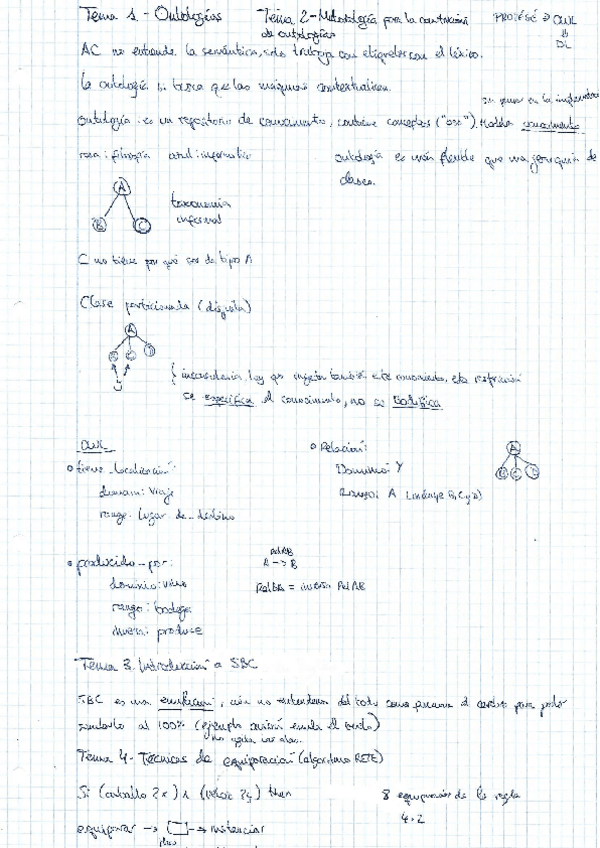 Tema 1.- Ontologías
Tema 2- Metodología para la construcción de ontologías
PROTÉGÉ => OWL
DL
AC no entiende la semántica, solo trabaja con etiquetas con el léxico.
La ontología busca que las máquinas contextualicen.
Ontología: es un repositorio de conocimiento, contiene conceptos ("oso"). conocimiento
rosa: filosofía azul: informática
ontología es más flexible que una jerarquía de clases.
A
B C
taxonomía informal
C no tiene por qué ser de tipo A
Clase particionada (disjunta)
A
B C D
{ inconsistencia, hay que también este conocimiento, esta
se especifica el conocimiento, no se codifica
OWL
tiene-localización:
domain: Viaje
rango: lugar-de-destino
Relación:
Dominio: Y
Rango: A (incluye B, C y D)
A
B C D
producido-por:
dominio: vino
rango: bodega
inversa: produce
RelAB
A -> B
RelBA = inversa RelAB
Tema 3. Introducción a SBC
SBC es una emulación, aún no entendemos del todo como funciona el cerebro para poder
simularlo al 100% (ejemplo avión emula el vuelo)
no agita las alas
Tema 4- Técnicas de equiparación (algoritmo RETE)
Si (caballo ?x) ∧ (veloz ?y) then
8 equiparaciones de la regla
4·2
equiparar -> -> instanciar